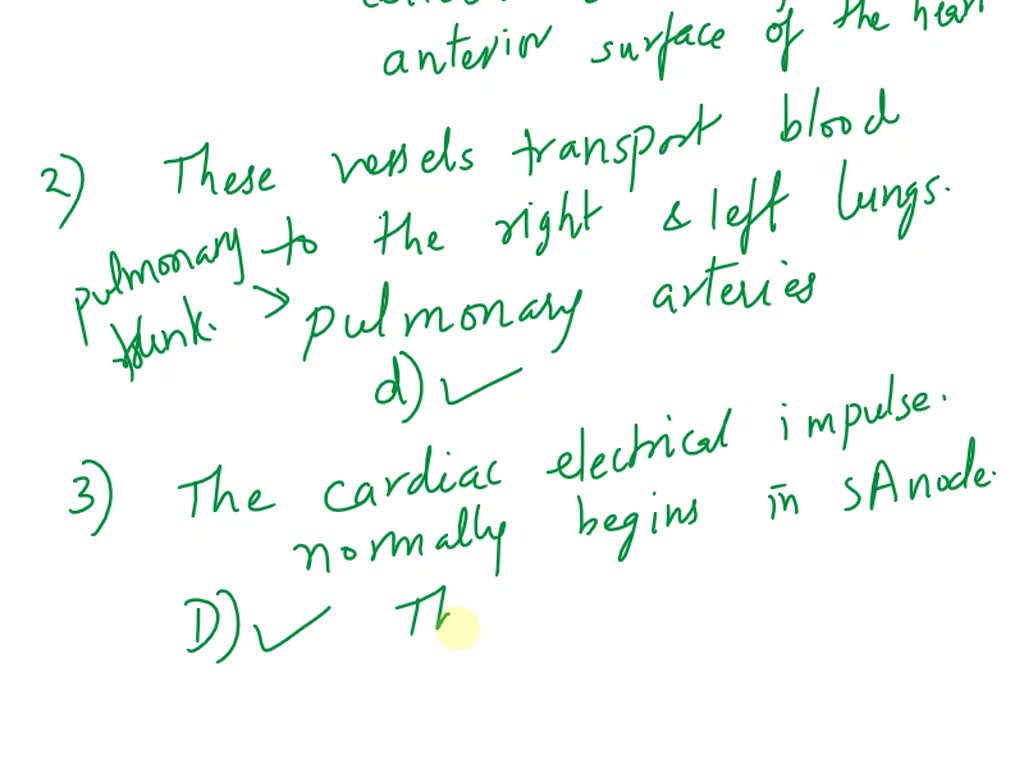 anterior surface of the
2) These vessels transport blood
to the right & left lungs.
pulmonary
trunk. > pulmonary arteries
d) ✓
3) The cardiac electrical impulse.
normally begins in SA node.
D) ✓ Th